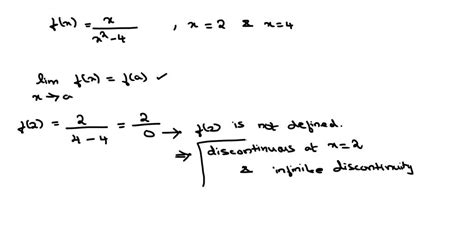 f(x) = x / (x² - 4) , x = 2 & x = 4
lim x→a f(x) = f(a) ✓
f(2) = 2 / (4 - 4) = 2 / 0 → f(2) is not defined.
⇒ discontinuous at x = 2
& infinite discontinuity